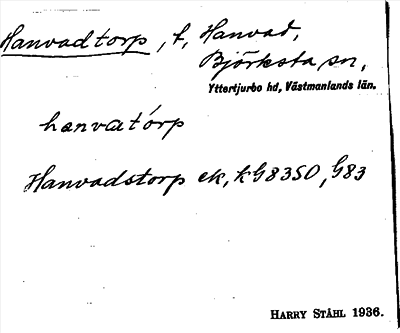 Hanvadtorp, t, Hanvad,
Björksta sn,
Yttertjurbo hd, Västmanlands län.
hanvatórp
Hanvadstorp ek, kG83SO, G83
HARRY STÅHL 1936.